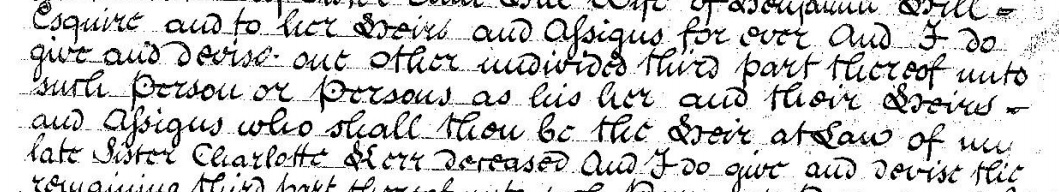 Wife of Benjamin Hill =
Esquire and to her Heirs and Assigns for ever And I do
give and devise one other undivided third part thereof unto
such Person or Persons as his her and their Heirs =
and Assigns who shall then be the Heir at Law of my
late Sister Charlotte Kerr deceased And I do give and devise the
remaining third part thereof unto such